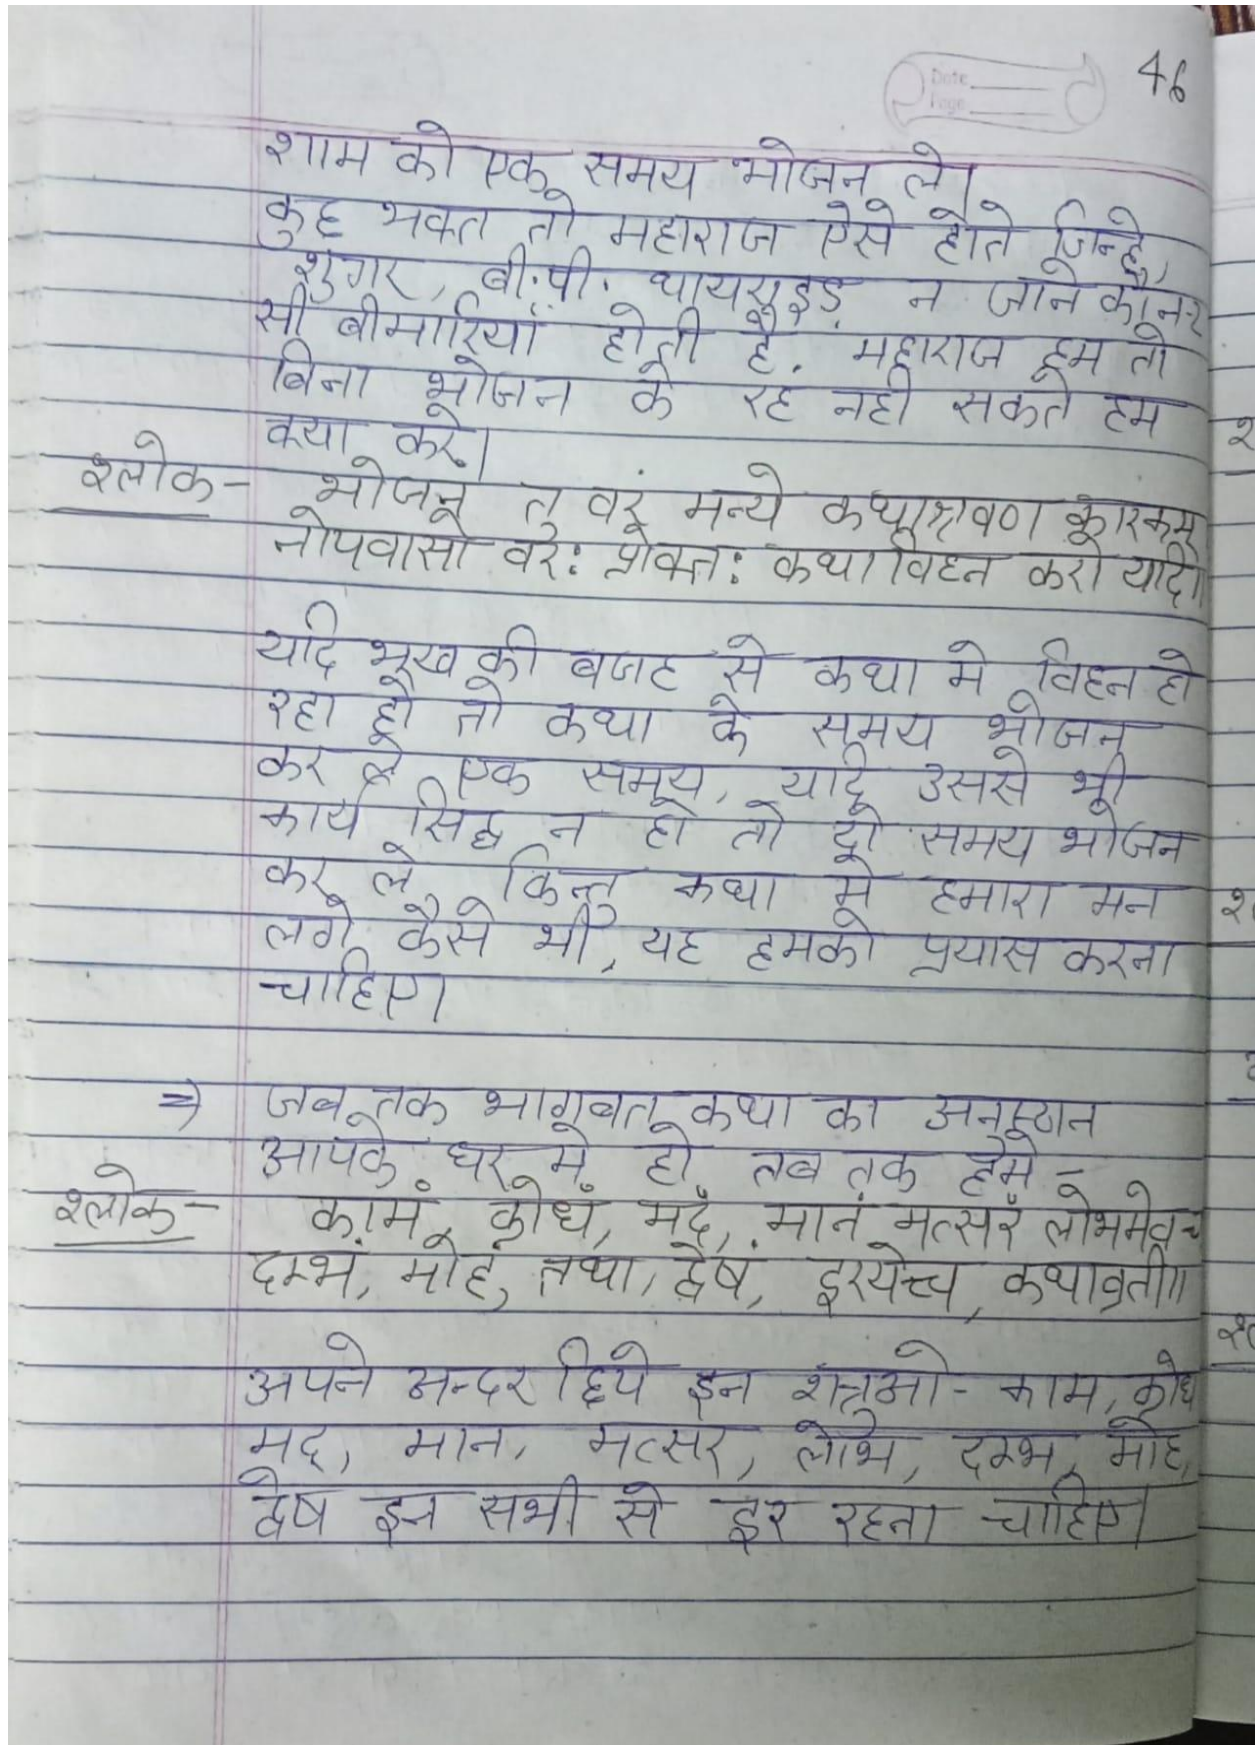 46
Date
Page
शाम को एक समय भोजन ले।
कुछ भक्त तो महाराज ऐसे होते जिन्हे,
शुगर, बी.पी. थायराइड न जाने कौन-2
सी बीमारियाँ होती है. महाराज हम तो
बिना भोजन के रह नही सकते हम
क्या करें।
श्लोक- भोजनं तु वरं मन्ये कथाश्रवण कारकम्
नोपवासो वरः प्रोक्तः कथा विघ्न करो यदि॥
यदि भूख की वजह से कथा मे विघ्न हो
रहा हो तो कथा के समय भोजन
कर ले एक समय, यदि उससे भी
कार्य सिद्ध न हो तो दो समय भोजन
कर ले, किन्तु कथा में हमारा मन
लगे कैसे भी, यह हमको प्रयास करना
चाहिए।
⇒ जब तक भागवत कथा का अनुष्ठान
आपके घर में हो तब तक हमे -
श्लोक- कामं, क्रोधं, मदं, मानं मत्सरं लोभमेव च
दम्भं, मोहं, तथा, द्वेषं, दूरयेच्च, कथाव्रती॥
अपने अन्दर छिपे इन शत्रुओ - काम, क्रोध
मद, मान, मत्सर, लोभ, दम्भ, मोह,
द्वेष इन सभी से दूर रहना चाहिए।